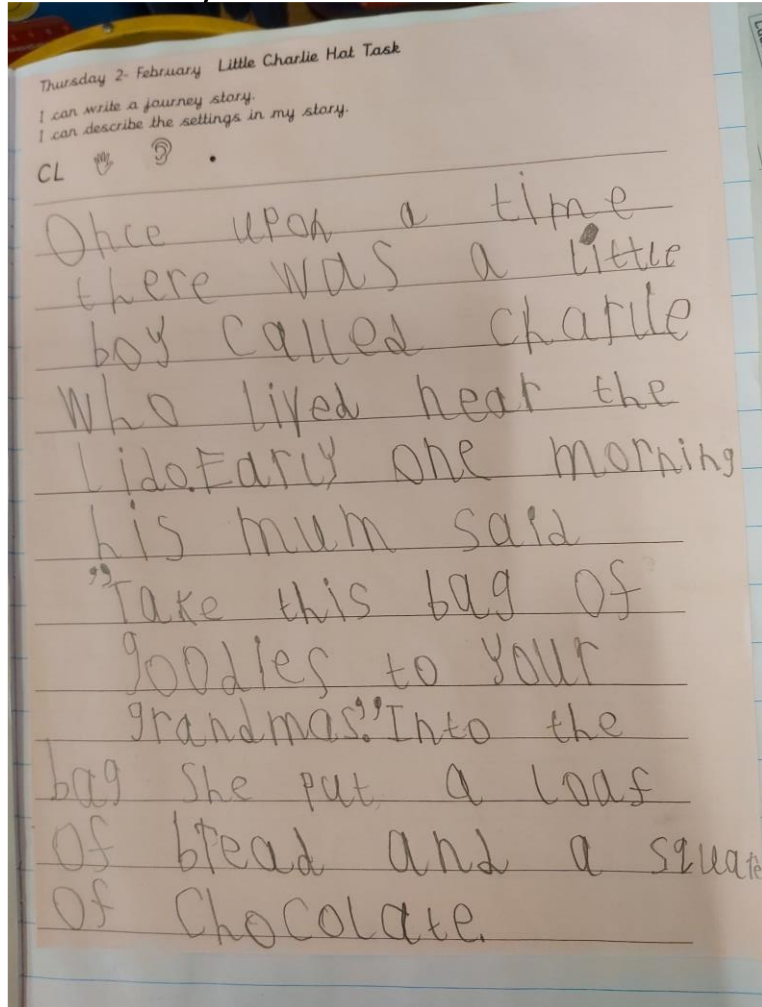 Thursday 2nd February Little Charlie Hot Task
I can write a journey story.
I can describe the settings in my story.
CL
Once upon a time
there was a little
boy called Charlie
who lived near the
Lido. Early one morning
his mum said
"Take this bag of
goodies to your
grandmas." Into the
bag She put a loaf
of bread and a square
of Chocolate.